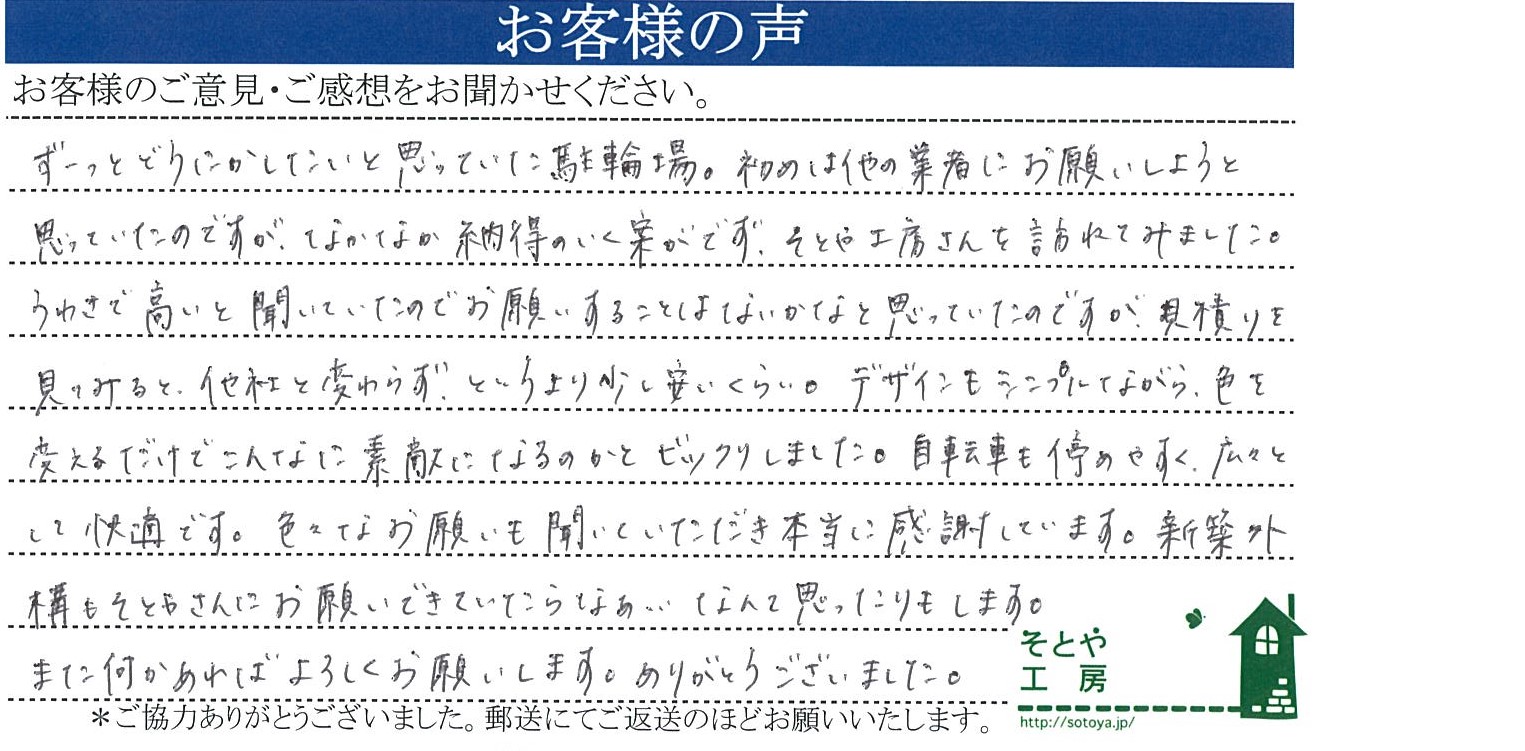 お客様の声
お客様のご意見・ご感想をお聞かせください。
ずーっとどうにかしたいと思っていた駐輪場。初めは他の業者にお願いしようと
思っていたのですが、なかなか納得のいく案がでず、そとや工房さんを訪れてみました。
うわさで高いと聞いていたのでお願いすることはないかなと思っていたのですが、見積りを
見てみると、他社と変わらず、というより少し安いくらい。デザインもシンプルてながら、色を
変えるだけでこんなに素敵になるのかとビックリしました。自転車も停めやすく、広々と
して快適です。色々なお願いも聞いていただき本当に感謝しています。新築外
構もそとやさんにお願いできていたらなぁ… なんて思ったりもします。
また何かあればよろしくお願いします。ありがとうございました。
そとや
工房
http://sotoya.jp/
＊ご協力ありがとうございました。郵送にてご返送のほどお願いいたします。